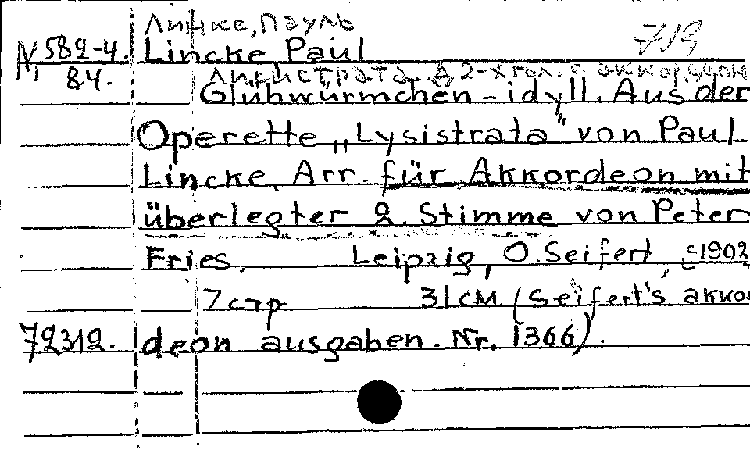 Линке, Пауль
719
N, 582-4. Lincke Paul
84. Лисистрата. Д 2-х гол. с аккордеон
Glühwürmchen-idyll. Aus der
Operette „Lysistrata" von Paul
Lincke, Arr. für Akkordeon mit
überlegter 2. Stimme von Peter
Fries. Leipzig, O. Seifert, c1902
7 стр. 31 см (Seifert's akko
72312. deon ausgaben. Nr. 1366).